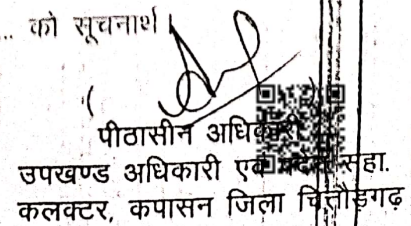 ... को सूचनार्थ।
(
पीठासीन अधिकारी
उपखण्ड अधिकारी एवं पदेन सहा.
कलक्टर, कपासन जिला चित्तौड़गढ़